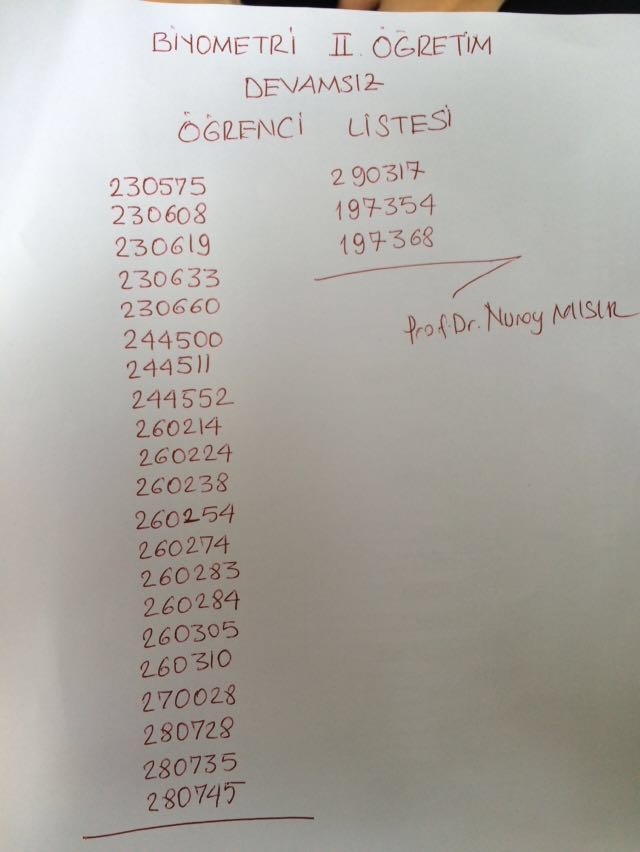 BİYOMETRİ II. ÖĞRETİM
DEVAMSIZ
ÖĞRENCİ LİSTESİ
230575
230608
230619
230633
230660
244500
244511
244552
260214
260224
260238
260254
260274
260283
260284
260305
260310
270028
280728
280735
280745
290317
197354
197368
Prof.Dr. Nuray MISIR